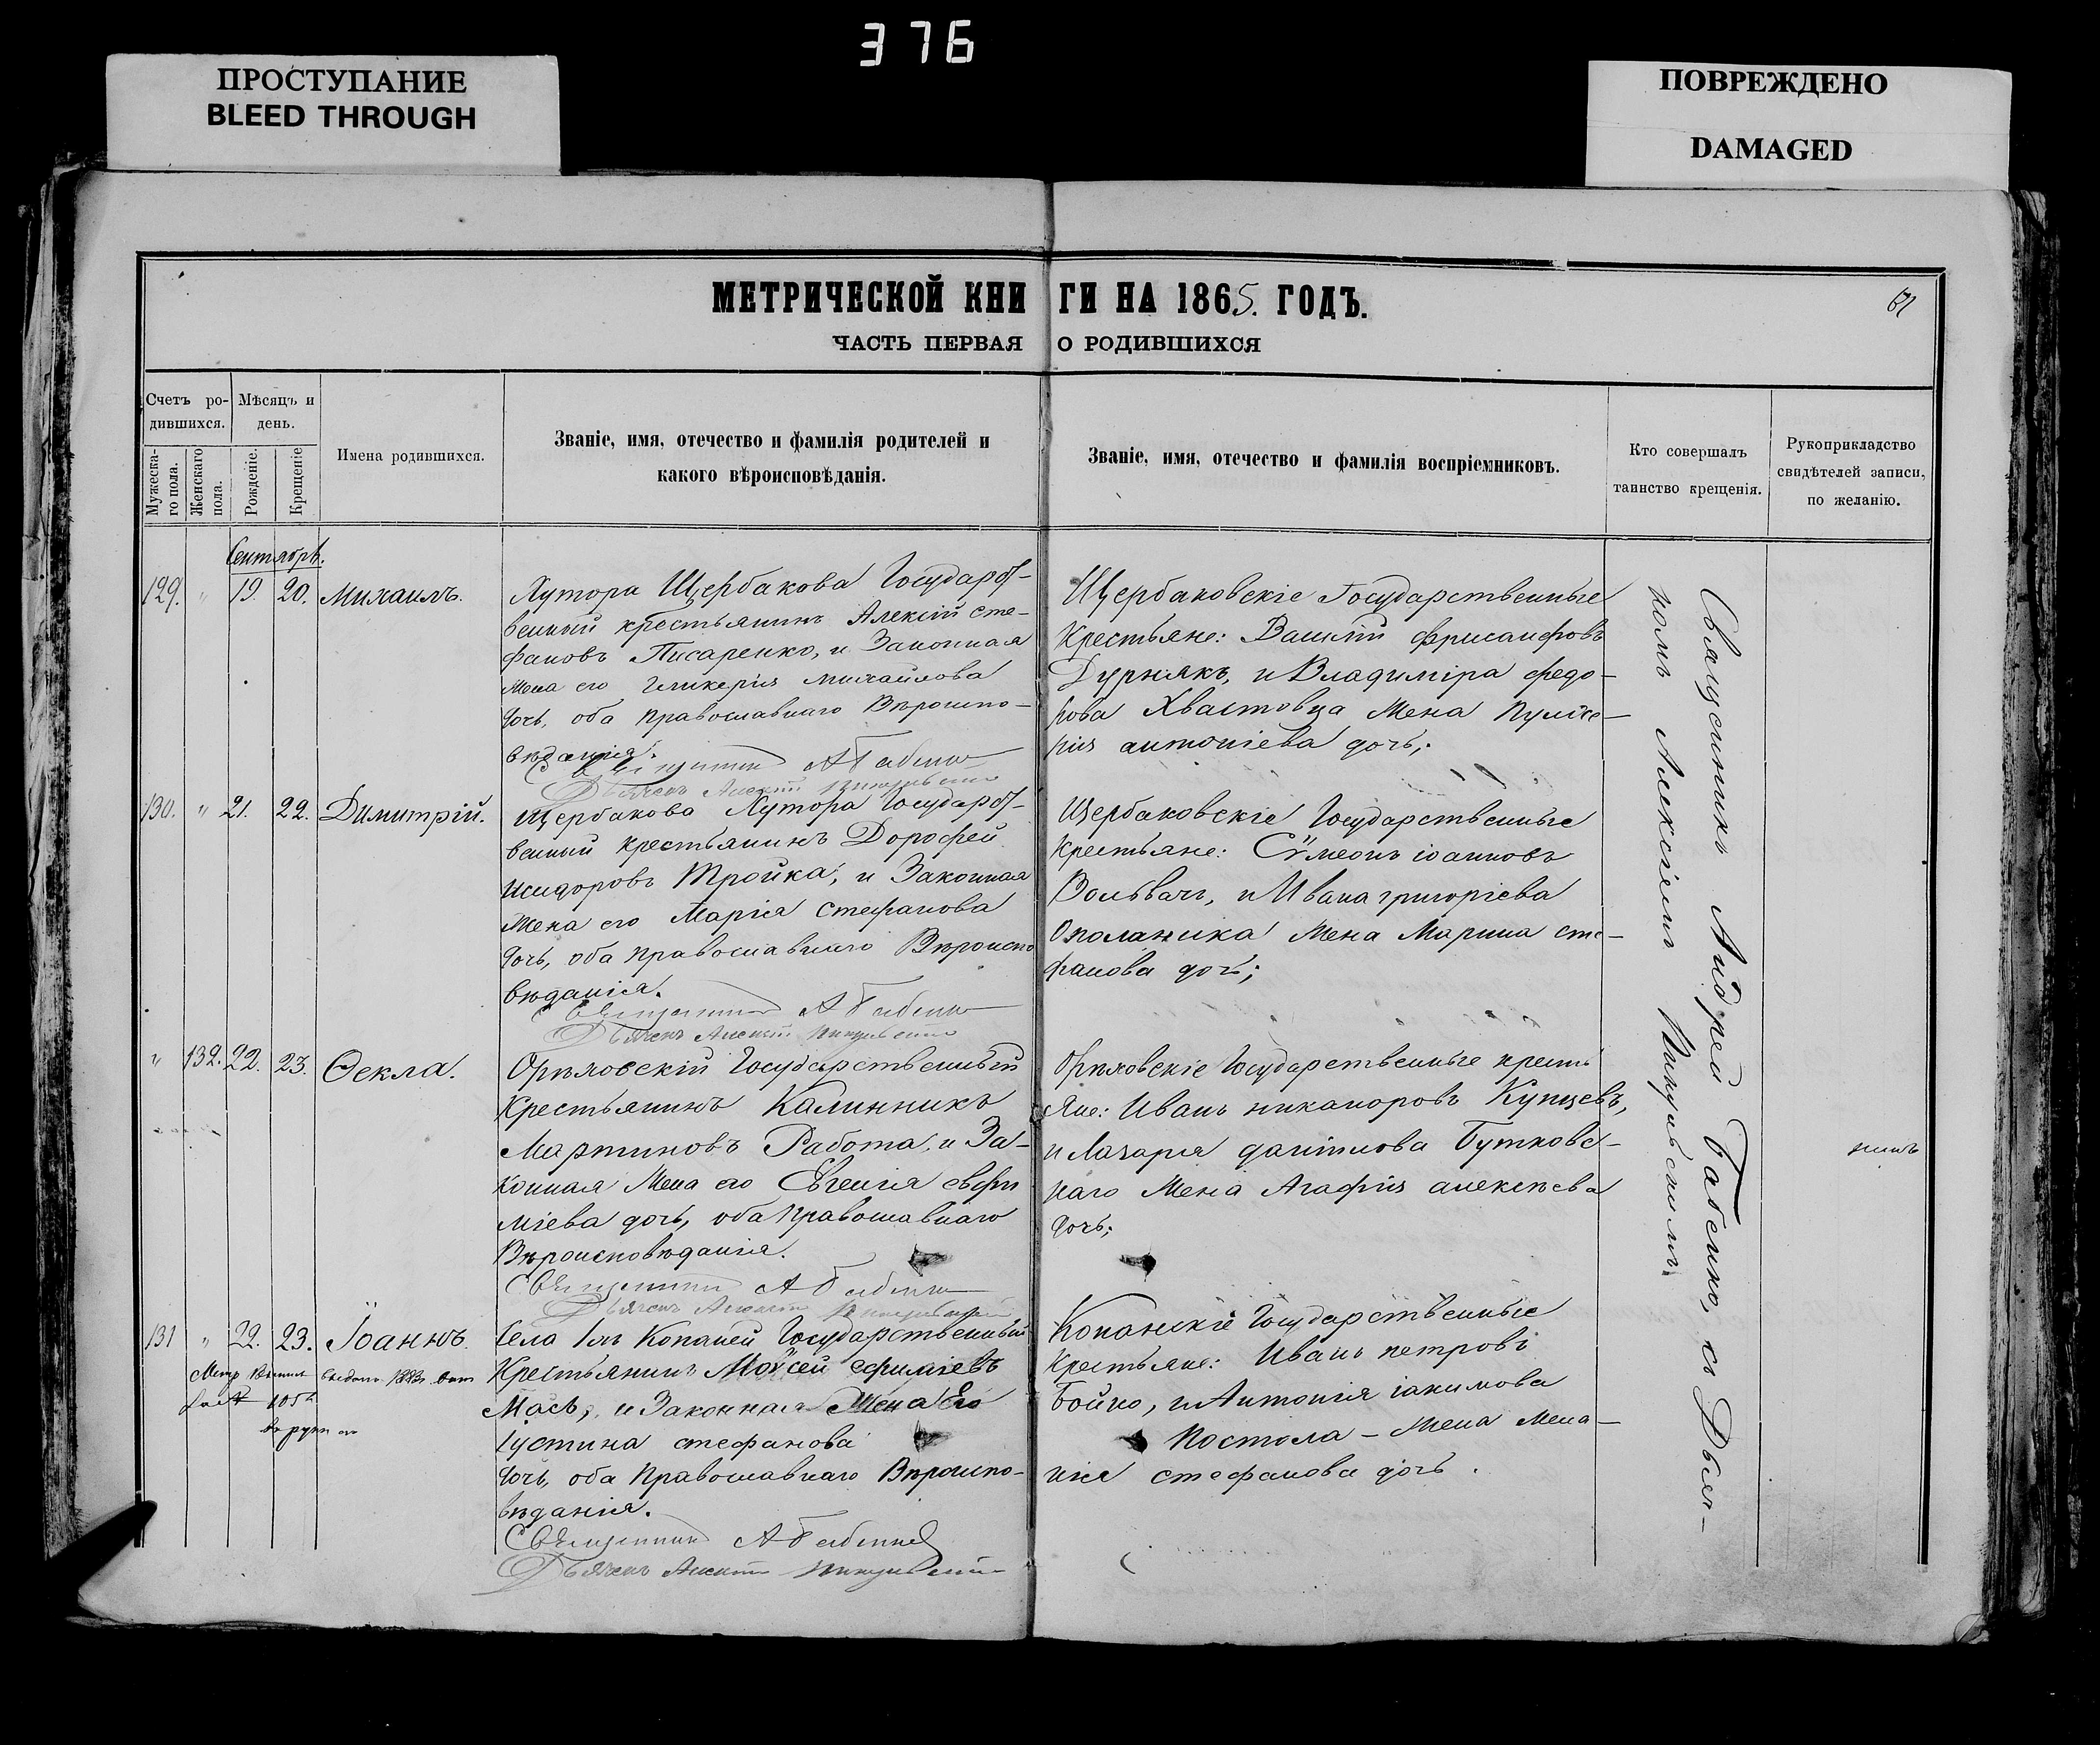 376
ПРОСТУПАНИЕ
BLEED THROUGH
ПОВРЕЖДЕНО
DAMAGED
МЕТРИЧЕСКОЙ КНИГИ НА 1865. ГОДЪ.
ЧАСТЬ ПЕРВАЯ О РОДИВШИХСЯ
Счетъ ро-
дившихся.
Мужеска-
го пола.
Женскаго
пола.
Мѣсяцъ и
день.
Рожденіе.
Крещеніе
Имена родившихся.
Званіе, имя, отечество и фамилія родителей и
какого вѣроисповѣданія.
Званіе, имя, отечество и фамилія воспріемниковъ.
Кто совершалъ
таинство крещенія.
Рукоприкладство
свидѣтелей записи,
по желанію.
Сентябрь.
129. " 19. 20. Михаилъ.
Хутора Щербакова Государст-
венный крестьянинъ Алексій сте-
фановъ Писаренко, и Законная
жена его Гликерія михайлова
дочь, оба православнаго Вѣроиспо-
вѣданія.
Священникъ А Бабенко
Дьячекъ Алексій
Щербаковскіе Государственные
Крестьяне: Василій
Дурнякъ, и Владиміра федо-
рова Хвастовца жена Пулхе-
рія антоніева дочь;
130. " 21. 22. Димитрій.
Щербакова Хутора Государст-
венный крестьянинъ Дорофей
исидоровъ Тройка, и Законная
жена его Марія Стефанова
дочь, оба православнаго Вѣроиспо
вѣданія.
Священникъ А Бабенко
Дьячекъ Алексій
Щербаковскіе Государственные
Крестьяне: Сѵмеонъ іоанновъ
Вольвачъ, и Ивана григоріева
жена Марина сте-
фанова дочь;
" 132. 22. 23. Ѳекла.
Орѣховскій Государственный
Крестьянинъ Калинникъ
Мартиновъ Работа, и За-
конная жена его Евгенія евфи
міева дочь, оба православнаго
Вѣроисповѣданія.
Священникъ А Бабенко
Дьячекъ Алексій
Орѣховскіе Государственные кресть
яне: Иванъ никаноровъ Купцевъ,
и Лазаря даніилова Бутковс-
каго жена Агафія алексѣева
дочь;
131 " 22. 23. Іоаннъ.
1883
105
Села Копаней Государственный
Крестьянинъ Моѵсей ефиміевъ
Мась, и Законная Жена Его
Іустина стефанова
дочь, оба Православнаго Вѣроиспо-
вѣданія.
Священникъ А Бабенко
Дьячекъ Алексій
Копанскіе Государственные
Крестьяне: Иванъ петровъ
Бойко, и Антонія іакимова
Постола – жена Мела-
нія стефанова дочь.
Священникъ Андрей Бабенко, съ Дьяч-
комъ Алексіемъ